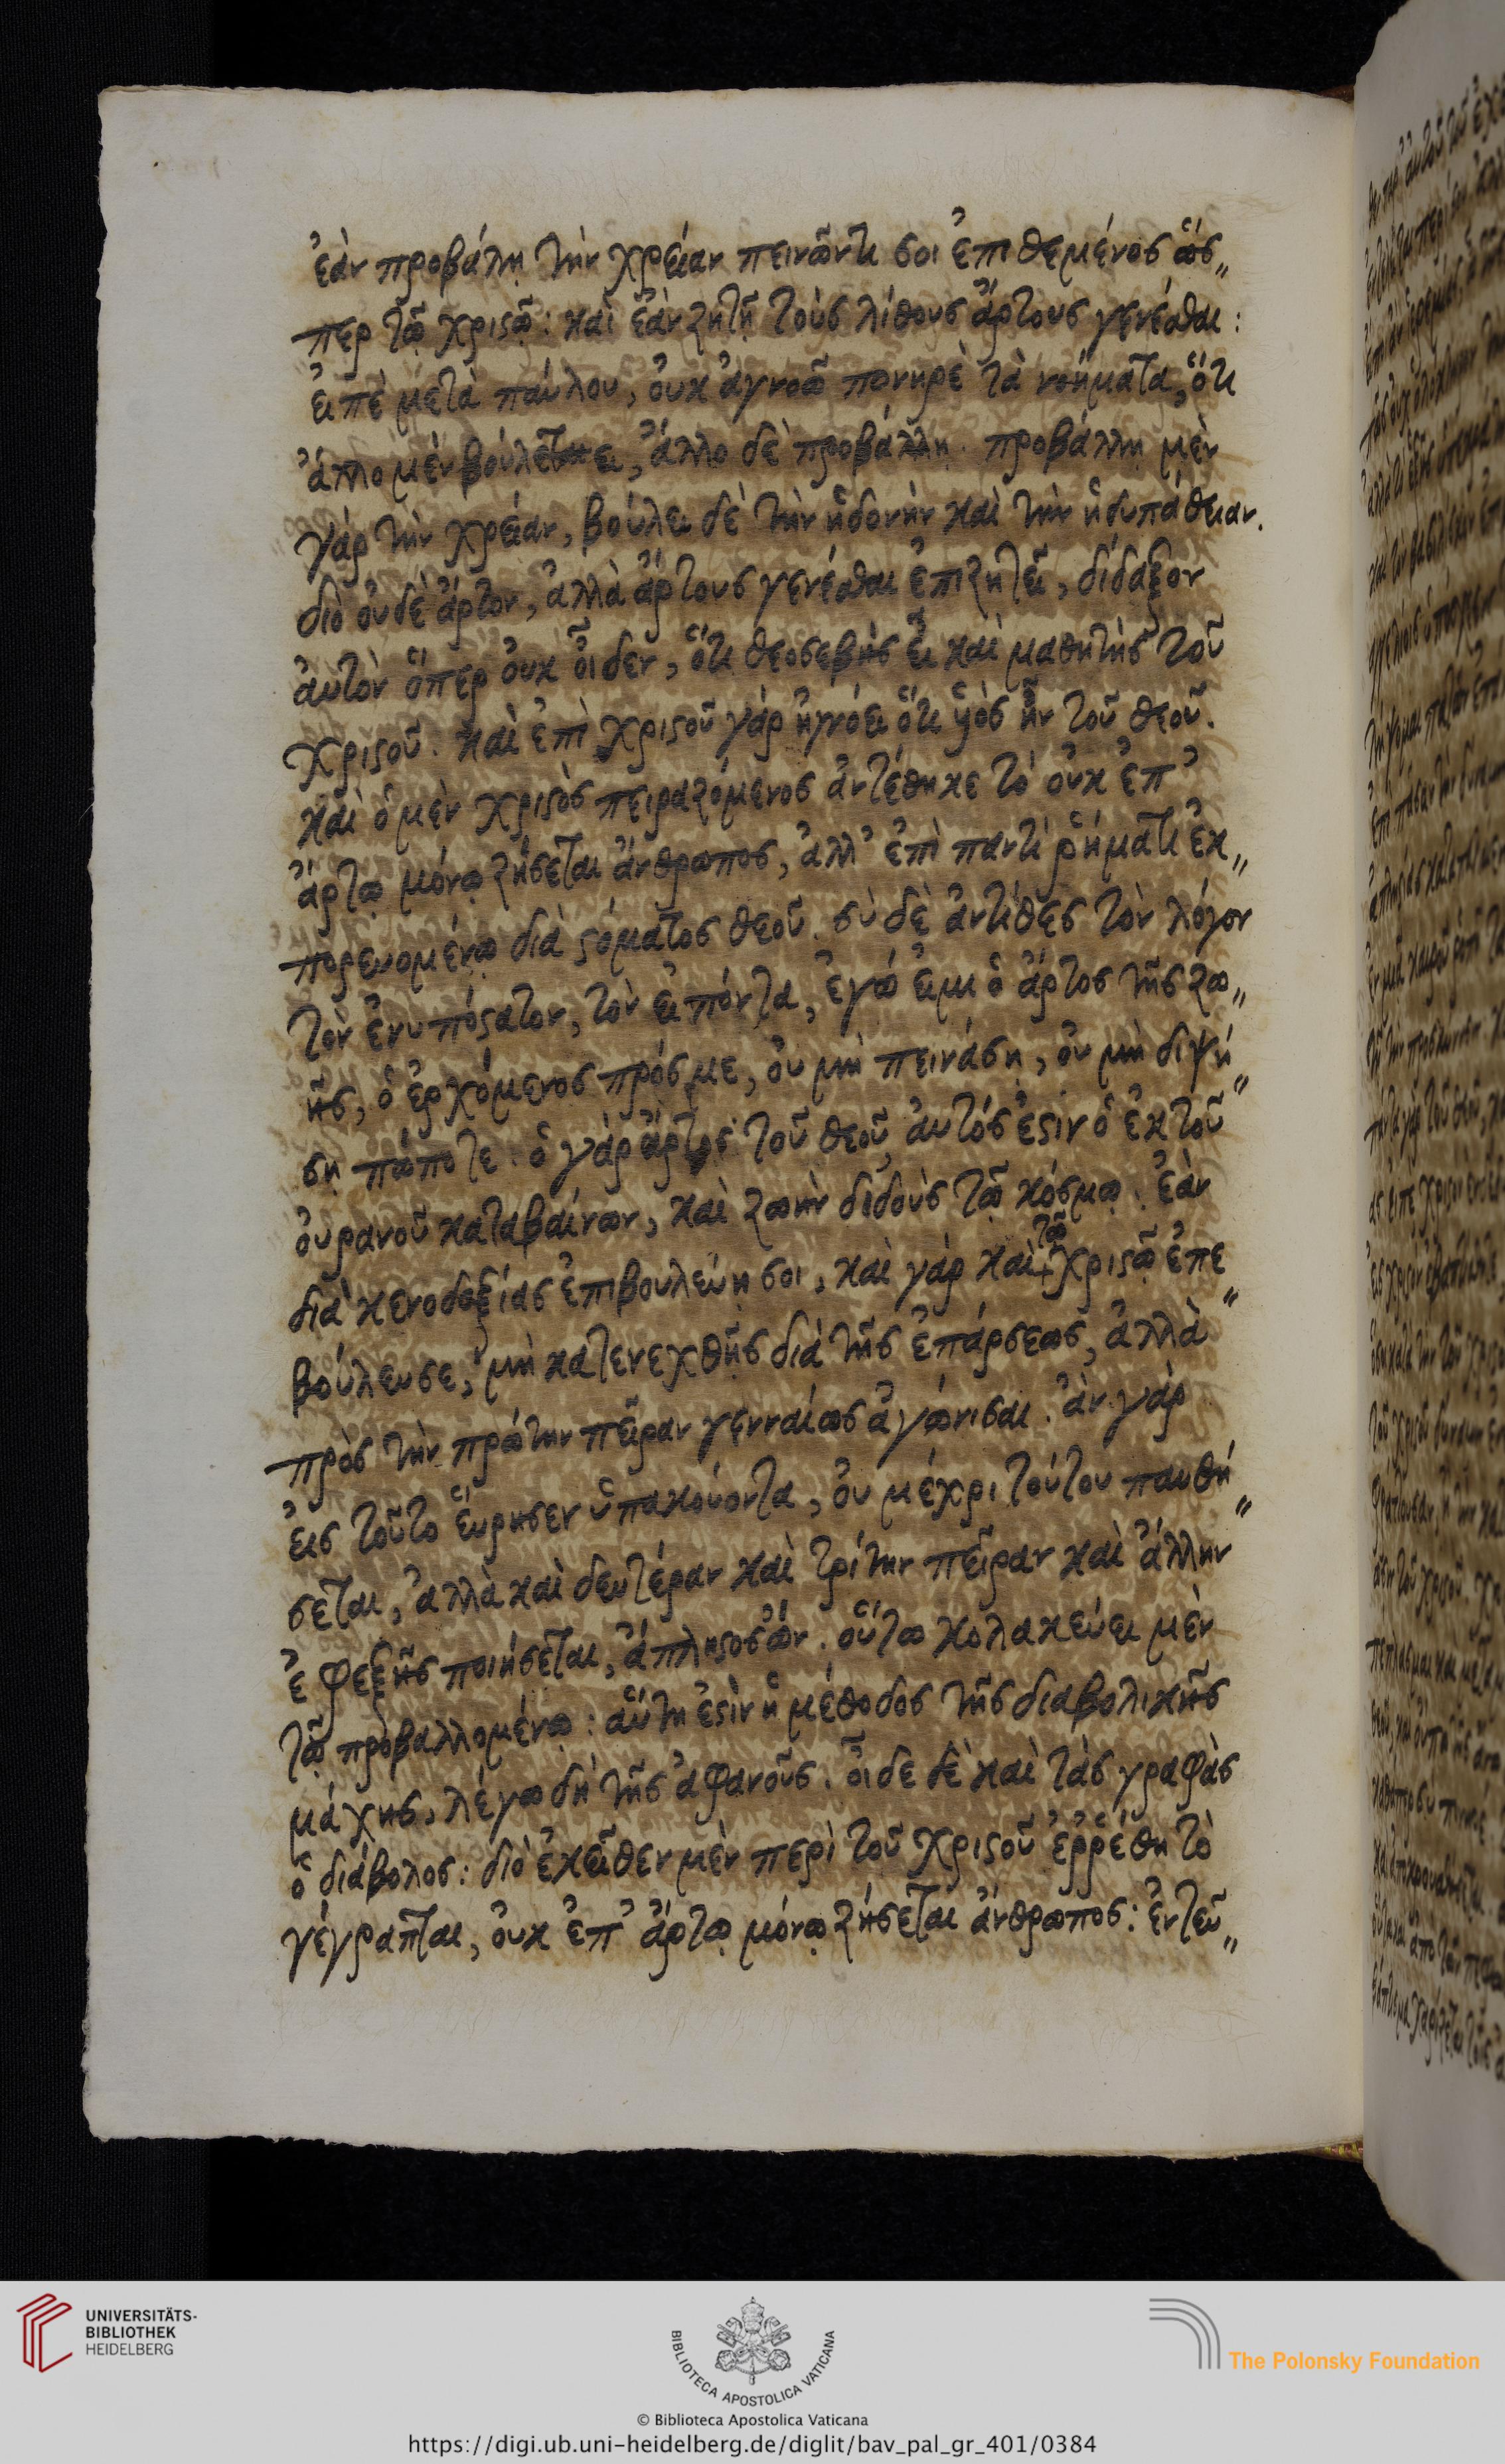 ἐὰν προβάλῃ τὴν χρείαν πεινῶντι σοι ἐπιθεμένος ὥσ„
περ τῷ χριστῷ: καὶ ἐὰν ζητῇ τοὺς λίθους ἄρτους γενέσθαι:
εἰπὲ μετὰ παύλου, οὐκ ἀγνοῶ πονηρὲ τὰ νοήματα, ὅτι
ἄλλο μὲν βούλει, ἄλλο δὲ προβάλλῃ. προβάλλῃ μὲν
γὰρ τὴν χρείαν, βούλει δὲ τὴν ἡδονὴν καὶ τὴν ἡδυπάθειαν.
διὸ οὐδὲ ἄρτον, ἀλλὰ ἄρτους γενέσθαι ἐπιζητεῖ, δίδαξον
αὐτὸν ὅπερ οὐκ οἶδεν, ὅτι θεοσεβὴς εἶ καὶ μαθητὴς τοῦ
χριστοῦ. καὶ ἐπὶ χριστοῦ γὰρ ἠγνόει ὅτι ὑὸς ἦν τοῦ θεοῦ.
καὶ ὁ μὲν χριστὸς πειραζόμενος ἀντέθηκε τὸ οὐκ ἐπ᾽
ἄρτῳ μόνῳ ζήσεται ἄνθρωπος, ἀλλ᾽ ἐπὶ παντὶ ῥήματι ἐκ„
πορευομένῳ διὰ στόματος θεοῦ. σὺ δὲ ἀντίθες τὸν λόγον
τὸν ἐνυπόστατον, τὸν εἰπόντα, ἐγώ εἰμι ὁ ἄρτος τῆς ζω„
ῆς, ὁ ἐρχόμενος πρός με, οὐ μὴ πεινάσῃ, οὐ μὴ διψή„
σῃ πώποτε. ὁ γὰρ ἄρτος τοῦ θεοῦ, αὐτός ἐστιν ὁ ἐκ τοῦ
οὐρανοῦ καταβαίνων, καὶ ζωὴν διδοὺς τῷ κόσμῳ. ἐὰν
διὰ κενοδοξίας ἐπιβουλεύῃ σοι, καὶ γὰρ καὶ τῷ χριστῷ ἐπε„
βούλευσε, μὴ κατενεχθῇς διὰ τῆς ἐπάρσεως, ἀλλὰ
πρὸς τὴν πρώτην πεῖραν γενναίως ἀγώνισαι. ἂν γὰρ
εἰς τοῦτο εὕρησεν ὑπακούοντα, οὐ μέχρι τούτου παυθή„
σεται, ἀλλὰ καὶ δευτέραν καὶ τρίτην πεῖραν καὶ ἄλλην
ἐφεξῆς ποιήσεται, ἄπληστος ὤν. οὕτω κολακεύει μὲν
τῷ προβαλλομένῳ: αὕτη ἐστὶν ἡ μέθοδος τῆς διαβολικῆς
μάχης, λέγω δὴ τῆς ἀφανοῦς. οἶδε δὲ καὶ τὰς γραφὰς
ὁ διάβολος: διὸ ἐκεῖθεν μὲν περὶ τοῦ χριστοῦ ἐῤῥέθη τὸ
γέγραπται, οὐκ ἐπ᾽ ἄρτῳ μόνῳ ζήσεται ἄνθρωπος: ἐντεῦ„
UNIVERSITÄTS-
BIBLIOTHEK
HEIDELBERG
BIBLIOTECA APOSTOLICA VATICANA
The Polonsky Foundation
© Biblioteca Apostolica Vaticana
https://digi.ub.uni-heidelberg.de/diglit/bav_pal_gr_401/0384